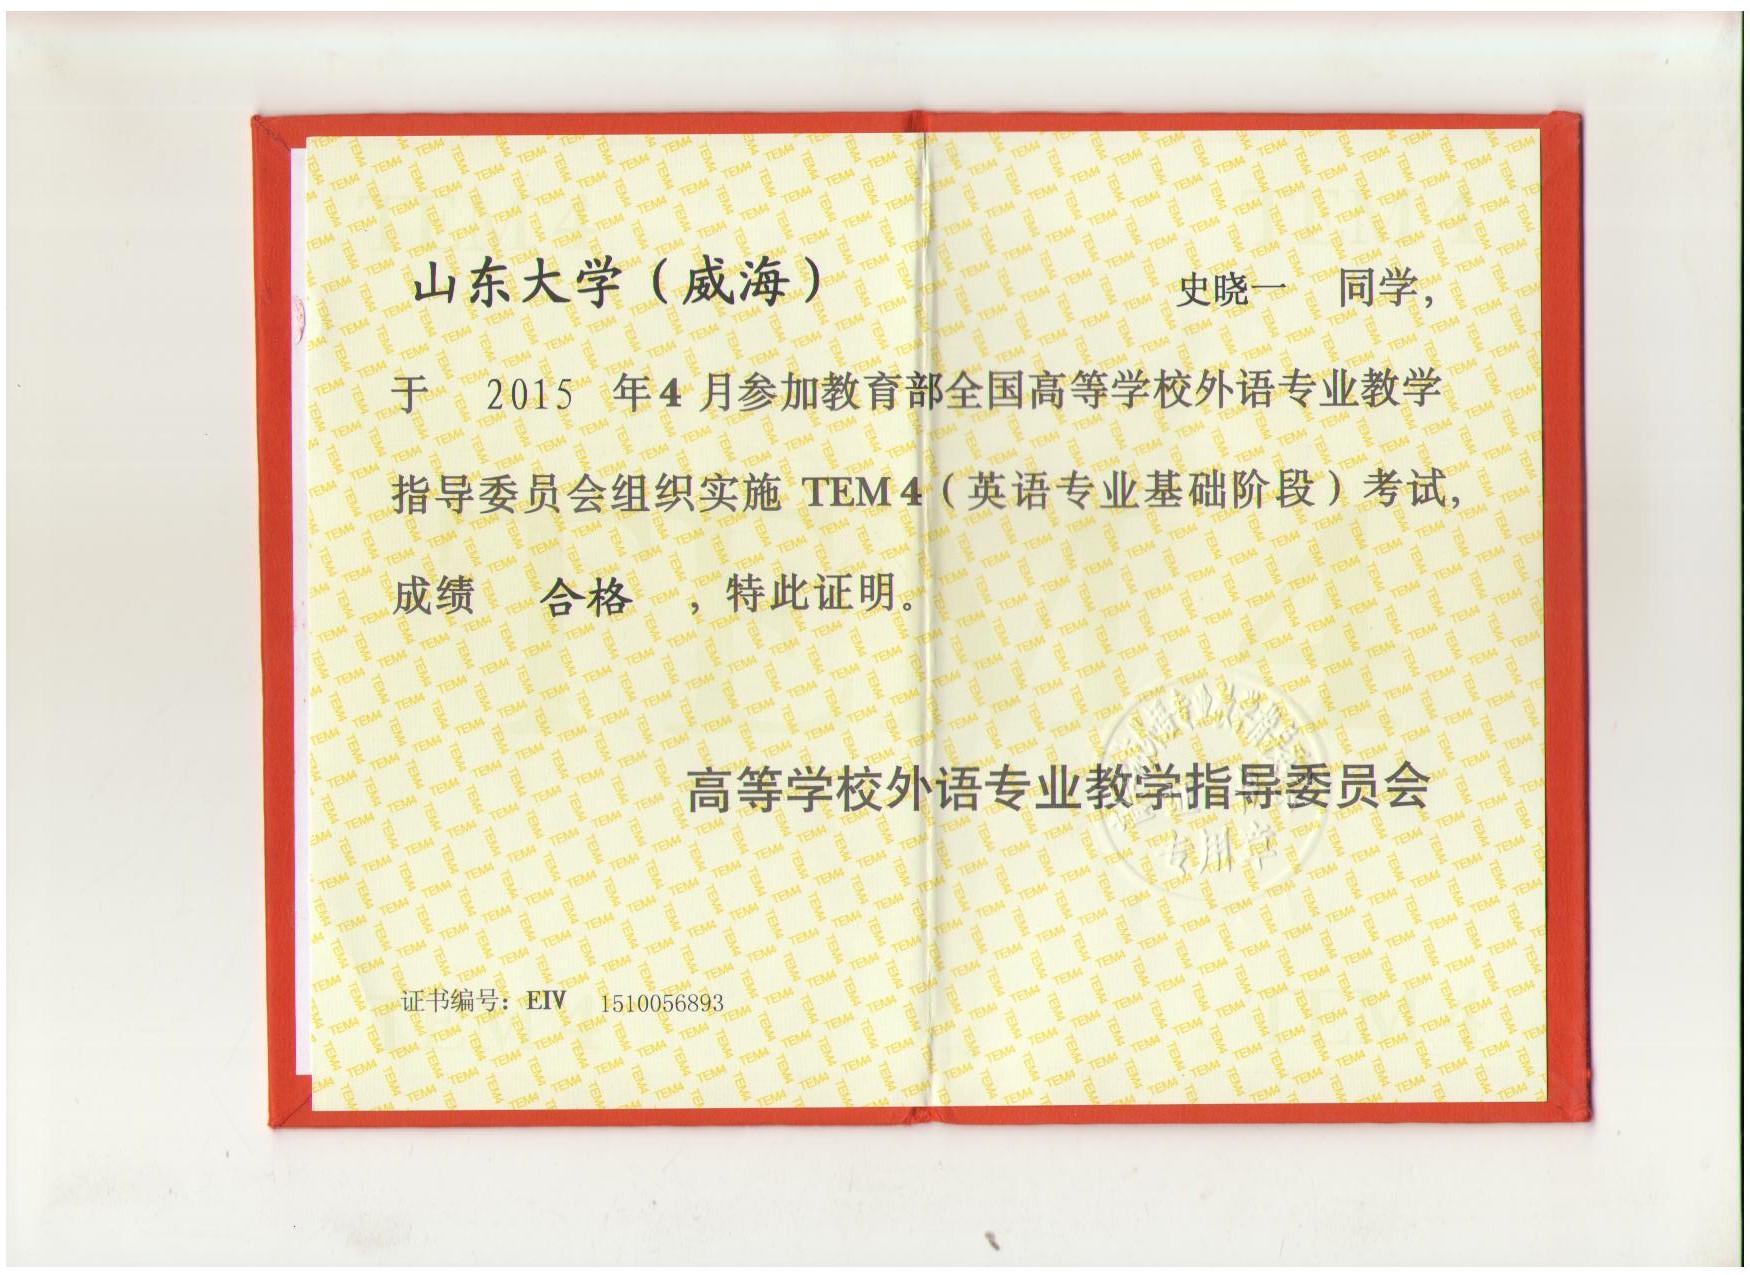 山东大学（威海） 史晓一 同学，
于 2015 年 4 月参加教育部全国高等学校外语专业教学
指导委员会组织实施 TEM 4（英语专业基础阶段）考试，
成绩 合格 ，特此证明。
高等学校外语专业教学指导委员会
专用章
证书编号：EIV 1510056893